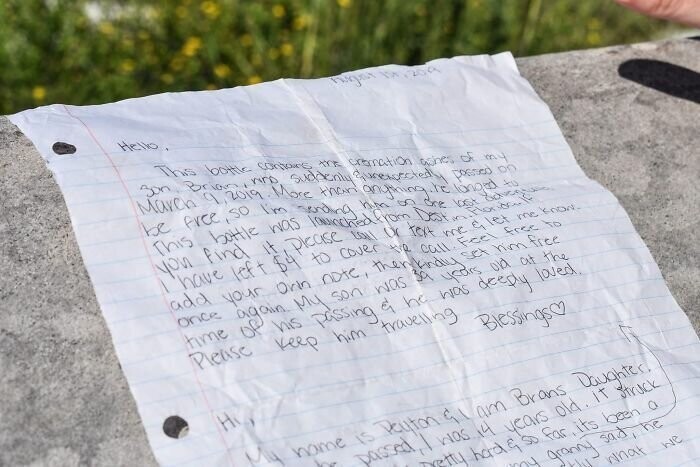 August 1st, 2019
Hello,
This bottle contains the cremation ashes of my
son, Brian, who suddenly & unexpectedly passed on
March 9, 2019. More than anything, he longed to
be free, so I'm sending him on one last adventure.
This bottle was launched from Destin, Florida. If
you find it, please call or text me & let me know.
I have left $4 to cover the call. Feel free to
add your own note, then kindly set him free
once again. My son was 39 years old at the
time of his passing & he was deeply loved.
Please keep him travelling Blessings♡
Hi,
My name is Peyton & I am Brians Daughter.
he passed, I was 14 years old. It struck
pretty hard & so far, its been a
my granny sad, he
what we